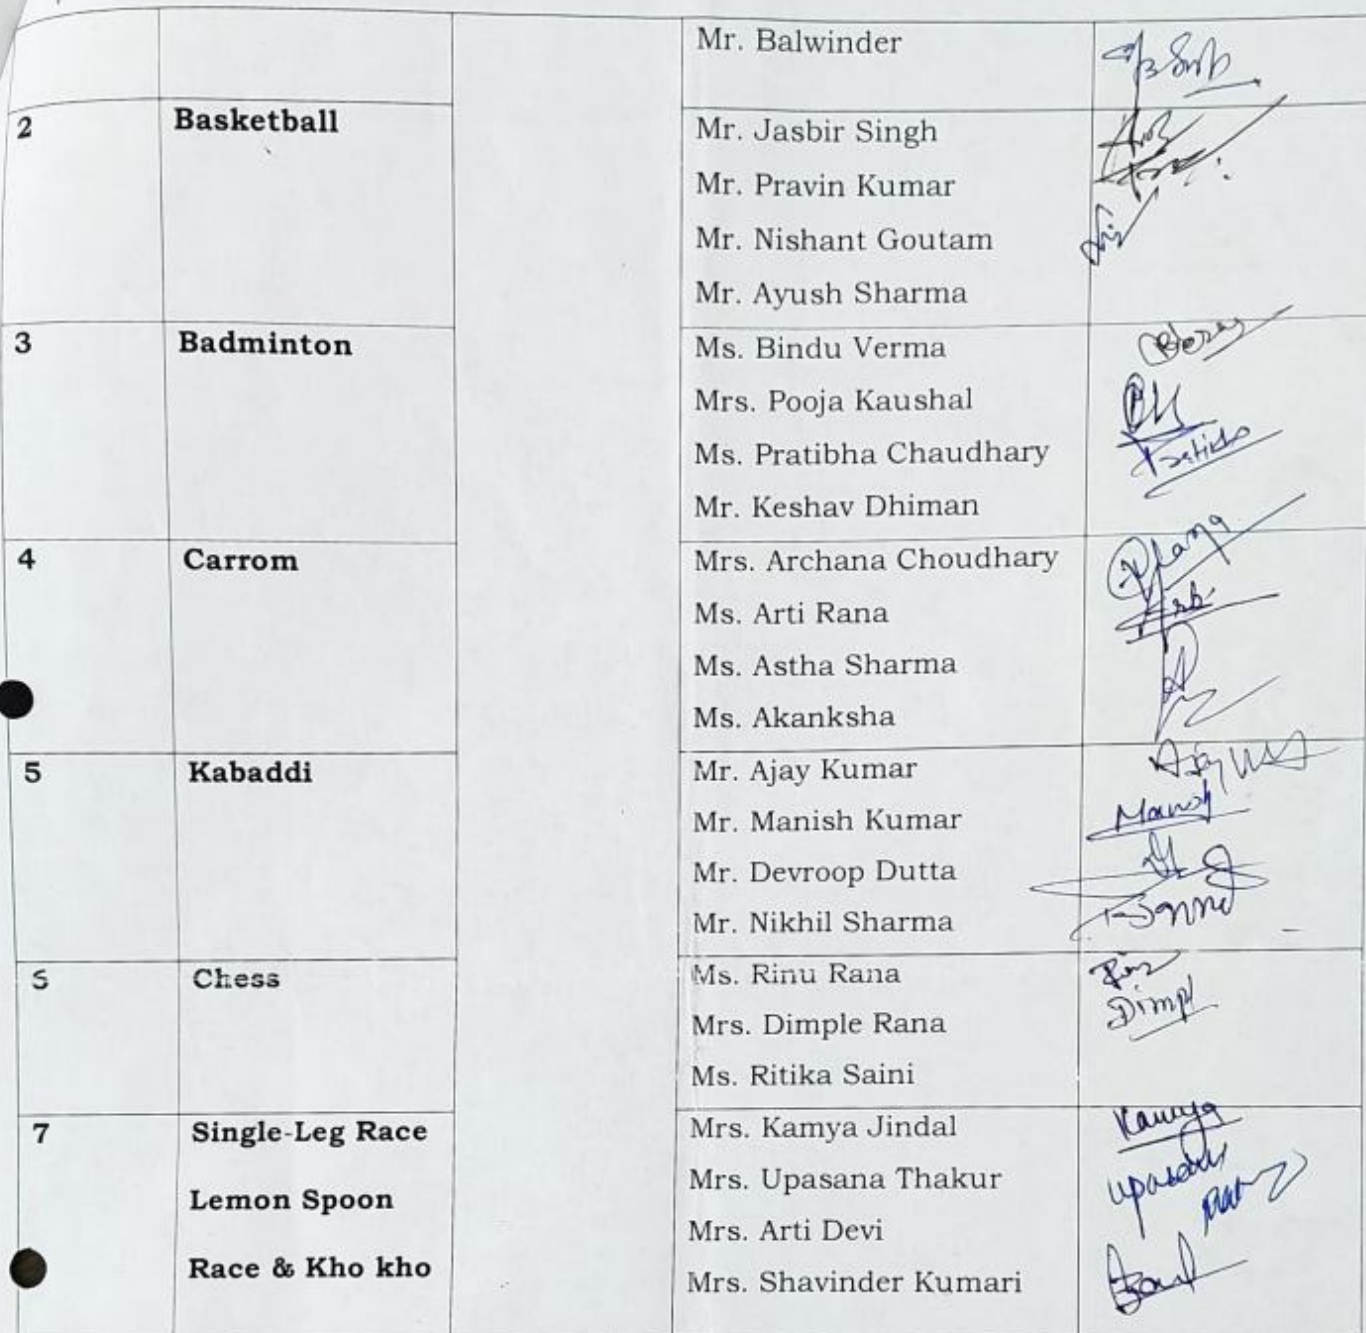 Mr. Balwinder
2 Basketball Mr. Jasbir Singh
Mr. Pravin Kumar
Mr. Nishant Goutam
Mr. Ayush Sharma
3 Badminton Ms. Bindu Verma
Mrs. Pooja Kaushal
Ms. Pratibha Chaudhary
Mr. Keshav Dhiman
4 Carrom Mrs. Archana Choudhary
Ms. Arti Rana
Ms. Astha Sharma
Ms. Akanksha
5 Kabaddi Mr. Ajay Kumar
Mr. Manish Kumar
Mr. Devroop Dutta
Mr. Nikhil Sharma
Chess Ms. Rinu Rana
Mrs. Dimple Rana Dimpl
Ms. Ritika Saini
7 Single-Leg Race Mrs. Kamya Jindal Kamya
Lemon Spoon Mrs. Upasana Thakur Upasana
Mrs. Arti Devi
Race & Kho kho Mrs. Shavinder Kumari